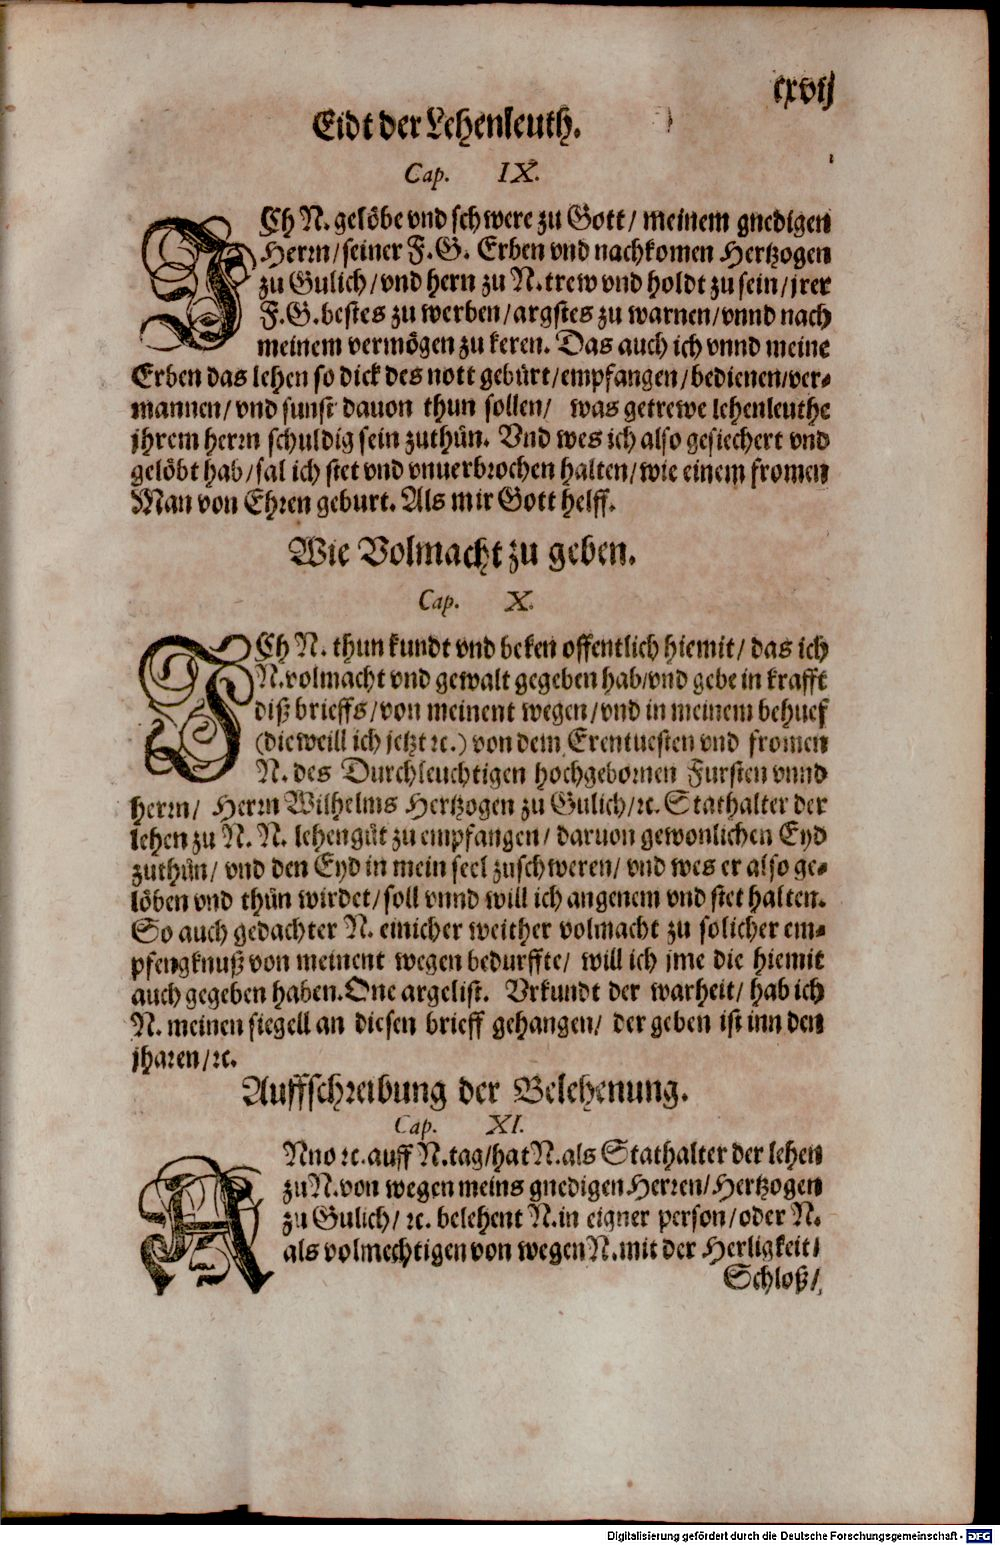 cxvij
Eidt der Lehenleuth.
Cap. IX.
ICh N. gelöbe vnd schwere zu Gott/ meinem gnedigen
Herrn/ seiner F.G. Erben vnd nachkomen Hertzogen
zu Gulich/ vnd hern zu N. trew vnd holdt zu sein/ jrer
F.G. bestes zu werben/ argstes zu warnen/ vnnd nach
meinem vermögen zu keren. Das auch ich vnnd meine
Erben das lehen so dick des nott gebürt/ empfangen/ bedienen/ ver-
mannen/ vnd sunst dauon thun sollen/ was getrewe lehenleuthe
jhrem herrn schuldig sein zuthůn. Vnd wes ich also gesiechert vnd
gelöbt hab/ sal ich stet vnd vnuerbrochen halten/ wie einem fromen
Man von Ehren geburt. Als mir Gott helff.
Wie Volmacht zu geben.
Cap. X.
ICh N. thun kundt vnd beken offentlich hiemit/ das ich
N. volmacht vnd gewalt gegeben hab/ vnd gebe in krafft
diß brieffs/ von meinent wegen/ vnd in meinem behuef
(die weill ich jetzt ꝛc.) von dem Erentuesten vnd fromen
N. des Durchleuchtigen hochgebornen Fursten vnnd
herrn/ Herrn Wilhelms Hertzogen zu Gulich/ ꝛc. Stathalter der
lehen zu N. N. lehengůt zu empfangen/ daruon gewonlichen Eyd
zuthůn/ vnd den Eyd in mein seel zuschweren/ vnd wes er also ge-
löben vnd thůn wirdet/ soll vnnd will ich angenem vnd stet halten.
So auch gedachter N. einicher weither volmacht zu solicher em-
pfengknuß von meinent wegen bedurffte/ will ich jme die hiemit
auch gegeben haben. One argelist. Vrkundt der warheit/ hab ich
N. meinen siegell an diesen brieff gehangen/ der geben ist inn den
jharen/ ꝛc.
Auffschreibung der Belehenung.
Cap. XI.
ANno ꝛc. auff N. tag/ hat N. als Stathalter der lehen
zu N. von wegen meins gnedigen Herren/ Hertzogen
zu Gulich/ ꝛc. belehent N. in eigner person/ oder N.
als volmechtigen von wegen N. mit der Herligkeit/
Schloß/
Digitalisierung gefördert durch die Deutsche Forschungsgemeinschaft - DFG